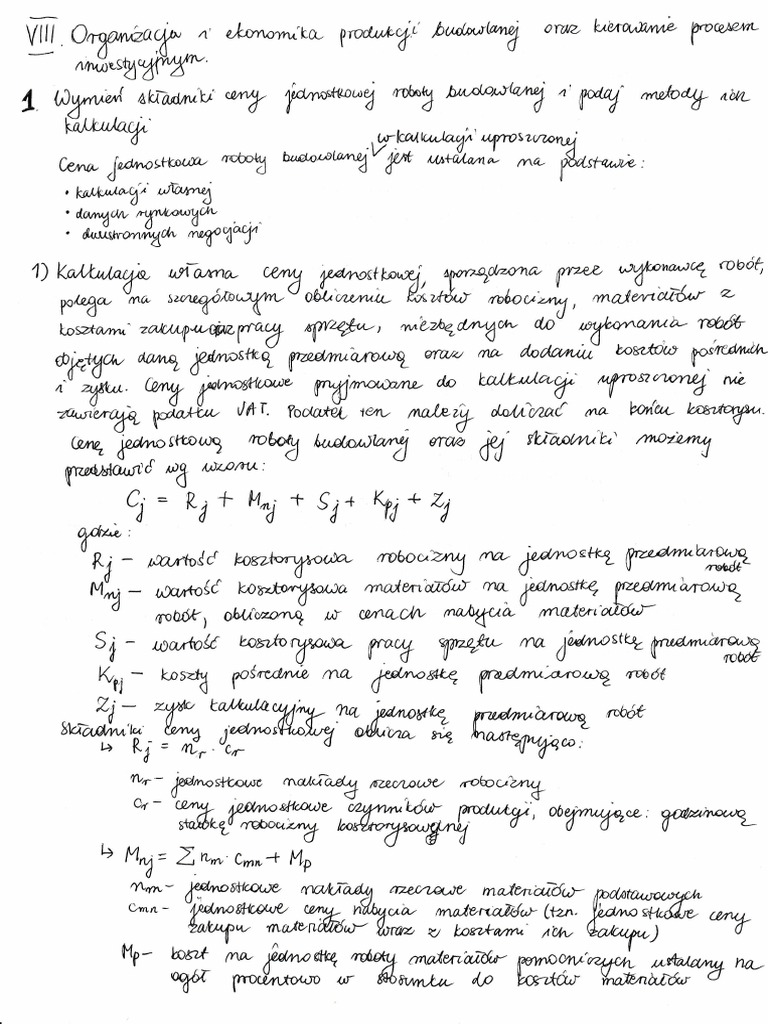 VIII. Organizacja i ekonomika produkcji budowlanej oraz kierowanie procesem
inwestycyjnym.
1. Wymień składniki ceny jednostkowej roboty budowlanej i podaj metody ich
kalkulacji
w kalkulacji uproszczonej
Cena jednostkowa roboty budowlanej jest ustalana na podstawie:
• kalkulacji własnej
• danych rynkowych
• dwustronnych negocjacji
1) Kalkulacja własna ceny jednostkowej, sporządzona przez wykonawcę robót,
polega na szczegółowym obliczeniu kosztów robocizny, materiałów z
kosztami zakupu oraz pracy sprzętu, niezbędnych do wykonania robót
objętych daną jednostką przedmiarową oraz na dodaniu kosztów pośrednich
i zysku. Ceny jednostkowe przyjmowane do kalkulacji uproszczonej nie
zawierają podatku VAT. Podatek ten należy doliczać na końcu kosztorysu.
Cenę jednostkową roboty budowlanej oraz jej składniki możemy
przedstawić wg wzoru:
Cj = Rj + Mnj + Sj + Kpj + Zj
gdzie:
Rj – wartość kosztorysowa robocizny na jednostkę przedmiarową
robót
Mnj – wartość kosztorysowa materiałów na jednostkę przedmiarową
robót, obliczoną w cenach nabycia materiałów
Sj – wartość kosztorysowa pracy sprzętu na jednostkę przedmiarową
robót
Kpj – koszty pośrednie na jednostkę przedmiarową robót
Zj – zysk kalkulacyjny na jednostkę przedmiarową robót
Składniki ceny jednostkowej oblicza się następująco:
↳ Rj = nr · cr
nr – jednostkowe nakłady rzeczowe robocizny
cr – ceny jednostkowe czynników produkcji, obejmujące: godzinową
stawkę robocizny kosztorysowej
↳ Mnj = Σ nm · cmn + Mp
nm – jednostkowe nakłady rzeczowe materiałów podstawowych
cmn – jednostkowe ceny nabycia materiałów (tzn. jednostkowe ceny
zakupu materiałów wraz z kosztami ich zakupu)
Mp – koszt na jednostkę roboty materiałów pomocniczych ustalany na
ogół procentowo w stosunku do kosztów materiałów